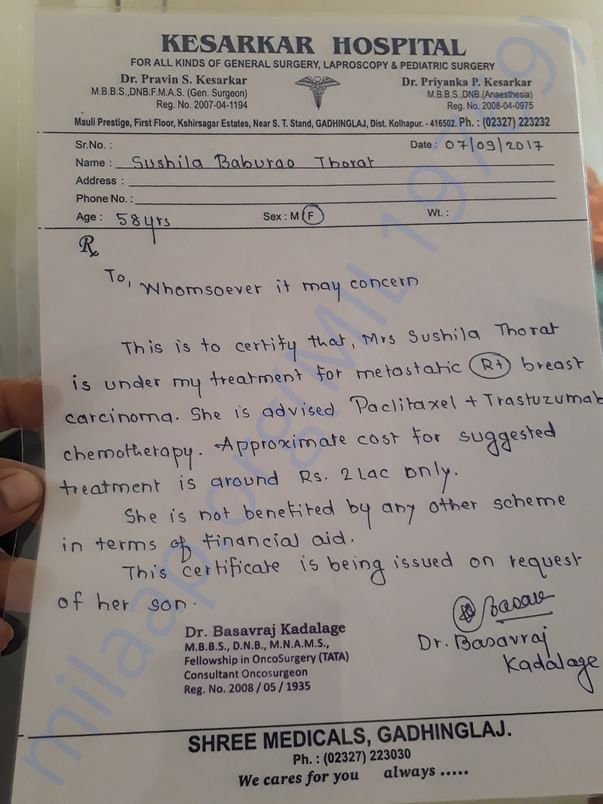 KESARKAR HOSPITAL
FOR ALL KINDS OF GENERAL SURGERY, LAPROSCOPY & PEDIATRIC SURGERY
Dr. Pravin S. Kesarkar
M.B.B.S.,DNB.F.M.A.S. (Gen. Surgeon)
Reg. No. 2007-04-1194
Dr. Priyanka P. Kesarkar
M.B.B.S.,DNB.(Anaesthesia)
Reg. No. 2008-04-0975
Mauli Prestige, First Floor, Kshirsagar Estates, Near S. T. Stand, GADHINGLAJ, Dist. Kolhapur. - 416502. Ph. : (02327) 223232
Sr.No. : Date : 07/09/2017
Name : Sushila Baburao Thorat
Address :
Phone No. :
Age : 58 yrs Sex : M F Wt. :
Rx
To, Whomsoever it may concern
This is to certify that, Mrs Sushila Thorat
is under my treatment for metastatic Rt breast
carcinoma. She is advised Paclitaxel + Trastuzumab
chemotherapy. Approximate cost for suggested
treatment is around Rs. 2 Lac only.
She is not benefited by any other scheme
in terms of financial aid.
This certificate is being issued on request
of her son.
Dr. Basavraj Kadalage
M.B.B.S., D.N.B., M.N.A.M.S.,
Fellowship in OncoSurgery (TATA)
Consultant Oncosurgeon
Reg. No. 2008 / 05 / 1935
Dr. Basavraj
Kadalage
SHREE MEDICALS, GADHINGLAJ.
Ph. : (02327) 223030
We cares for you always .....